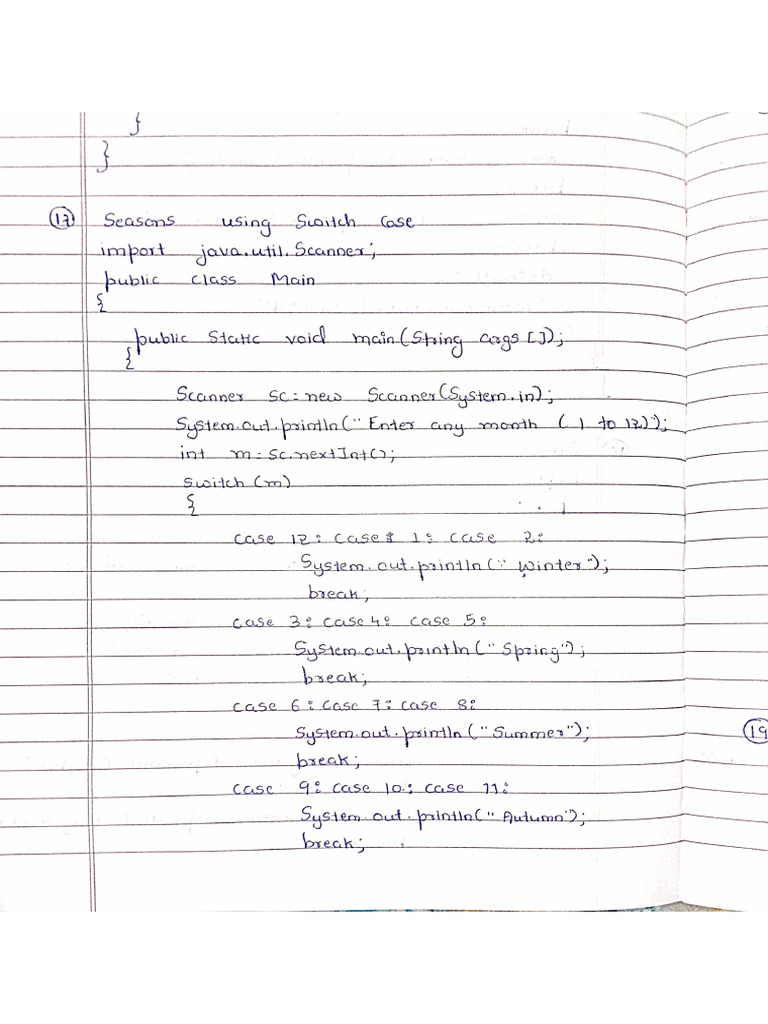 }
}
17 Seasons using Switch Case
import java.util.Scanner;
public class Main
{
public static void main(String args[]);
{
Scanner sc=new Scanner(System.in);
System.out.println("Enter any month (1 to 12)");
int m=sc.nextInt();
switch(m)
{
case 12: case 1: case 2:
System.out.println("Winter");
break;
case 3: case 4: case 5:
System.out.println("Spring");
break;
case 6: case 7: case 8:
System.out.println("Summer");
19
break;
case 9: case 10: case 11:
System.out.println("Autumn");
break;